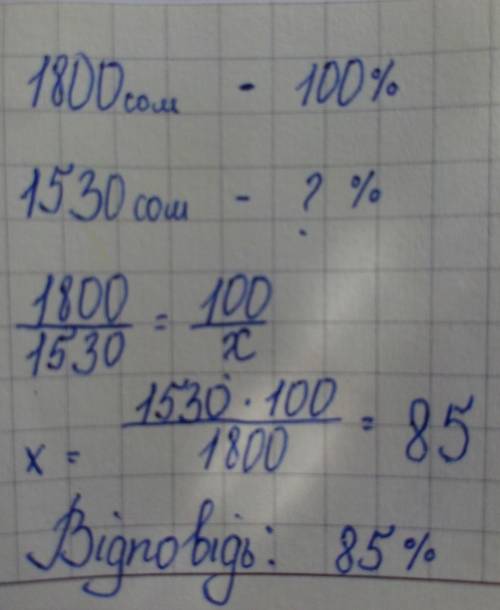 1800 сом - 100%
1530 сом - ? %
1800/1530 = 100/x
x = 1530 · 100/1800 = 85
Відповідь: 85%